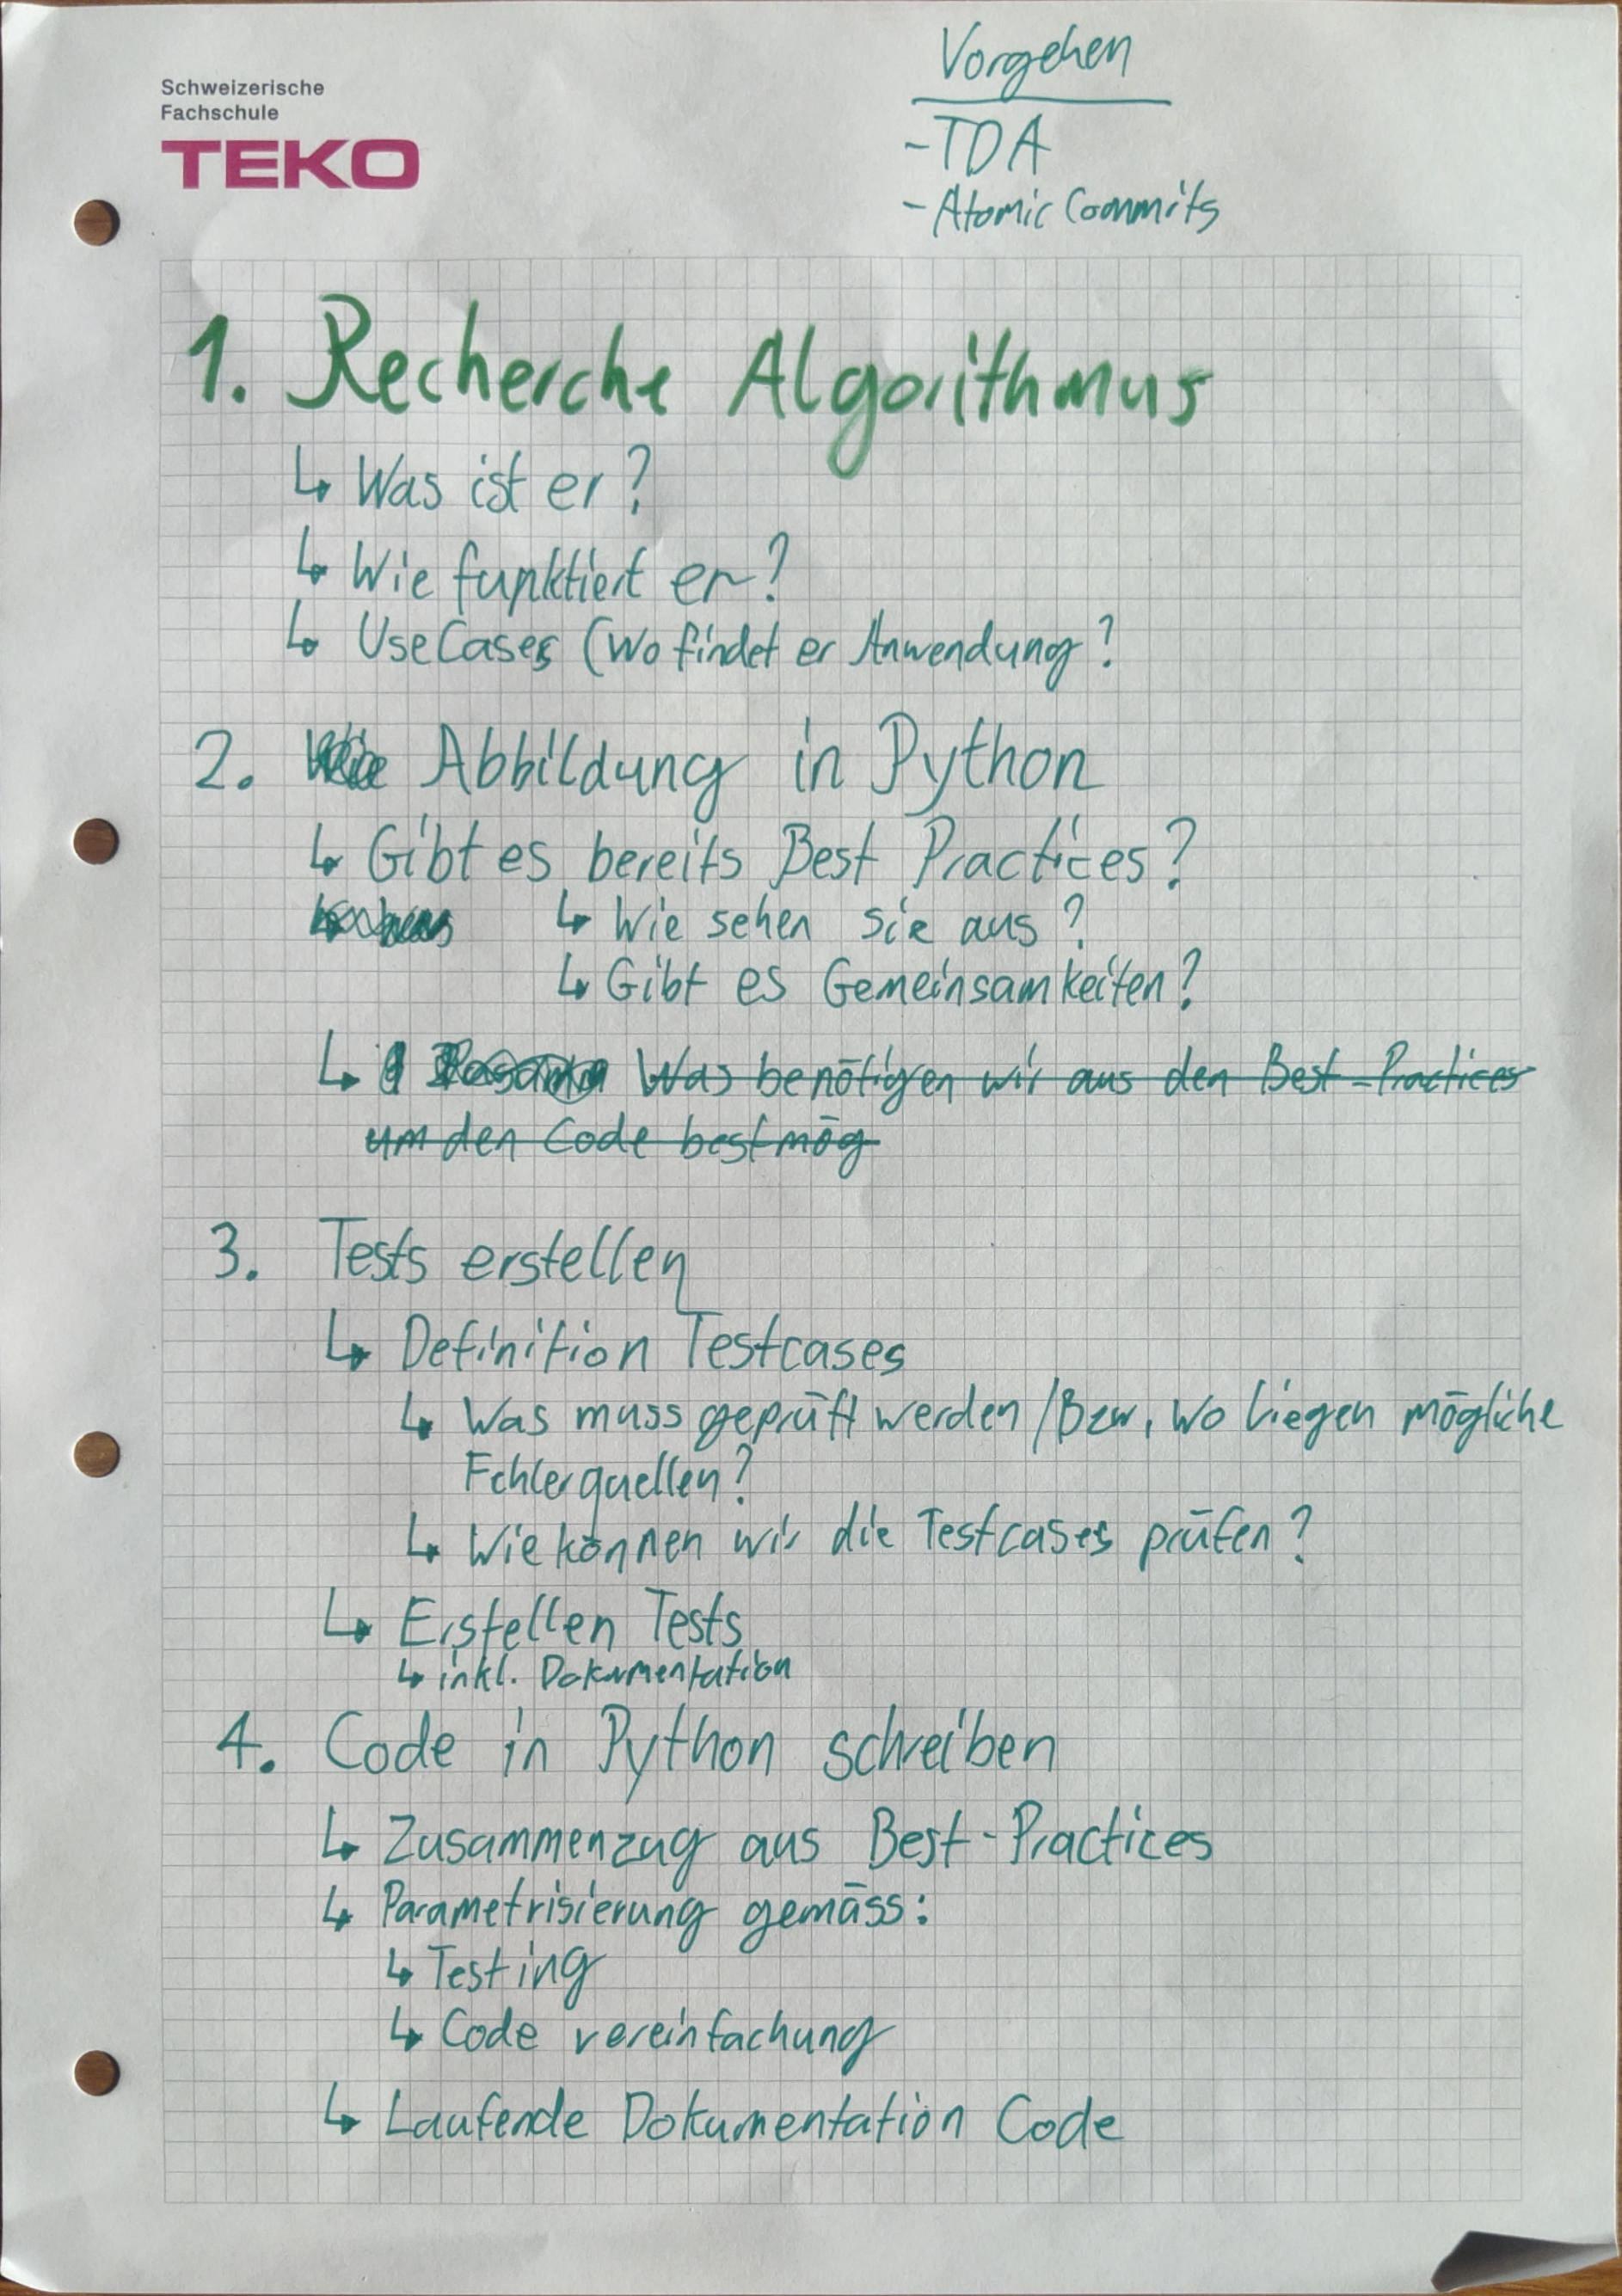 Schweizerische
Fachschule
TEKO
Vorgehen
- TDA
- Atomic Commits
1. Recherche Algorithmus
↳ Was ist er?
↳ Wie funktiert er?
↳ UseCases (Wo findet er Anwendung?
2. Abbildung in Python
↳ Gibt es bereits Best Practices?
↳ Wie sehen sie aus?
↳ Gibt es Gemeinsamkeiten?
↳ Was benötigen wir aus den Best-Practices
um den Code bestmög
3. Tests erstellen
↳ Definition Testcases
↳ Was muss geprüft werden / Bzw. wo liegen mögliche
Fehlerquellen?
↳ Wie können wir die Testcases prüfen?
↳ Erstellen Tests
↳ inkl. Dokumentation
4. Code in Python schreiben
↳ Zusammenzug aus Best-Practices
↳ Parametrisierung gemäss:
↳ Testing
↳ Code vereinfachung
↳ Laufende Dokumentation Code